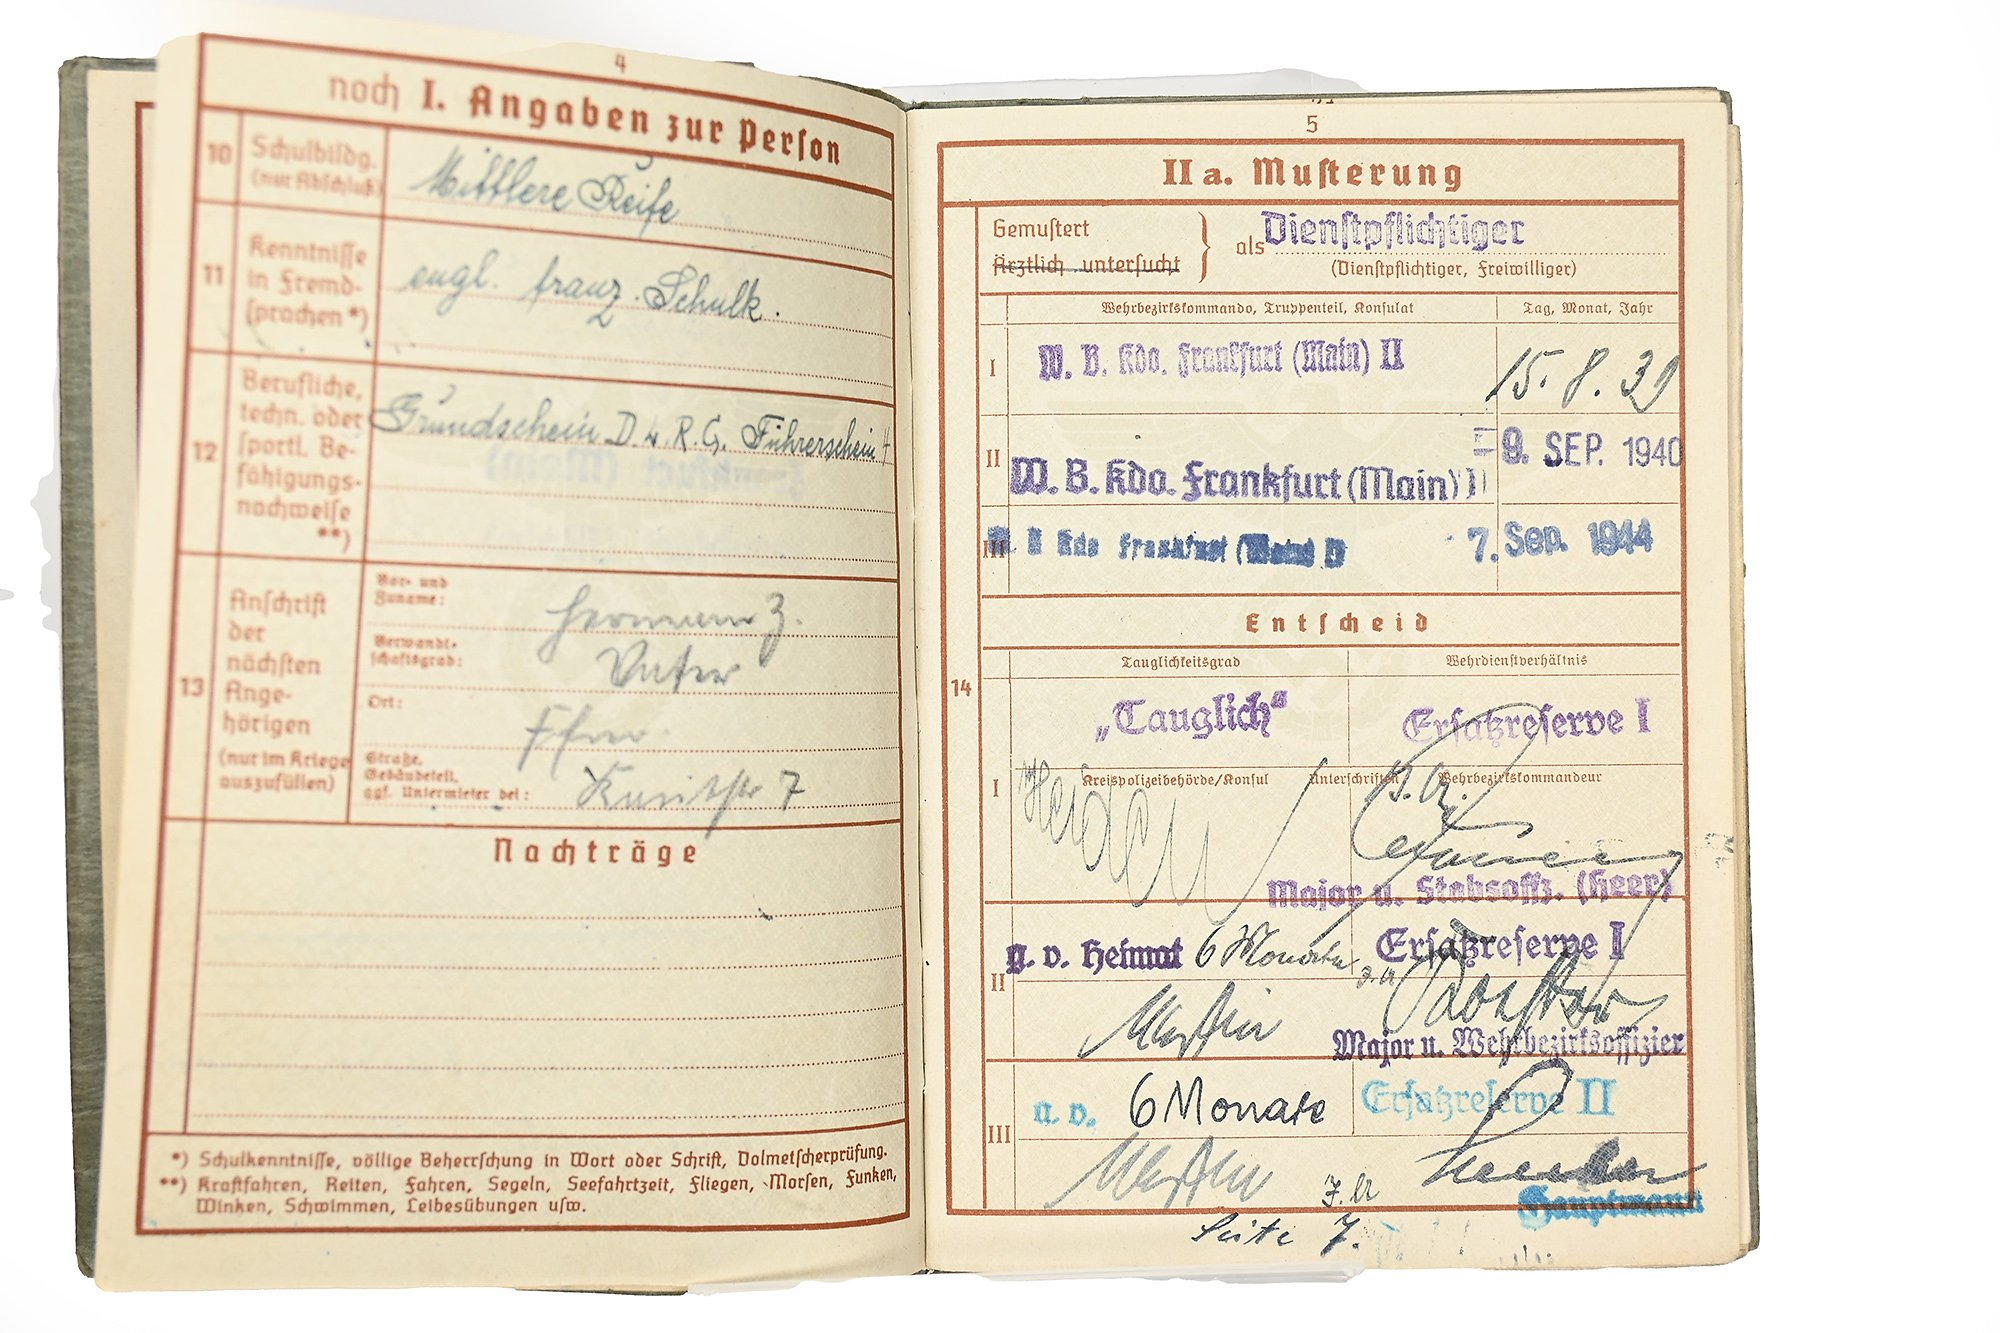 4
noch I. Angaben zur Person
10 Schulbildg. (nur Abschluß)
Mittlere Reife
11 Kenntnisse in Fremdsprachen *)
engl. franz. Schulk.
12 Berufliche, techn. oder sportl. Befähigungsnachweise **)
Grundschein D. L. R. G. Führerschein 4
13 Anschrift der nächsten Angehörigen (nur im Kriege auszufüllen)
Vor- und Zuname: Hermann Z.
Verwandtschaftsgrad: Vater
Ort: Ffm.
Straße, Gebäudeteil, ggf. Untermieter bei: 7
Nachträge
*) Schulkenntnisse, völlige Beherrschung in Wort oder Schrift, Dolmetscherprüfung.
**) Kraftfahren, Reiten, Fahren, Segeln, Seefahrtzeit, Fliegen, Morsen, Funken,
Winken, Schwimmen, Leibesübungen usw.
5
IIa. Musterung
Gemustert
Ärztlich untersucht
als Dienstpflichtiger
(Dienstpflichtiger, Freiwilliger)
Wehrbezirkskommando, Truppenteil, Konsulat
Tag, Monat, Jahr
I W. B. Kdo. Frankfurt (Main) II 15. 8. 39
II W. B. Kdo. Frankfurt (Main) 9. SEP. 1940
III W B Kdo Frankfurt (Main) 7. Sep. 1944
Entscheid
14
Tauglichkeitsgrad Wehrdienstverhältnis
I „Tauglich“ Ersatzreserve I
Kreispolizeibehörde/Konsul Unterschriften Wehrbezirkskommandeur
Major u. Stabsoffz. (Heer)
II a. v. Heimat 6 Monate Ersatzreserve I
Major u. Wehrbezirksoffizier
III a. v. 6 Monate Ersatzreserve II
Hauptmann
Seite 7.